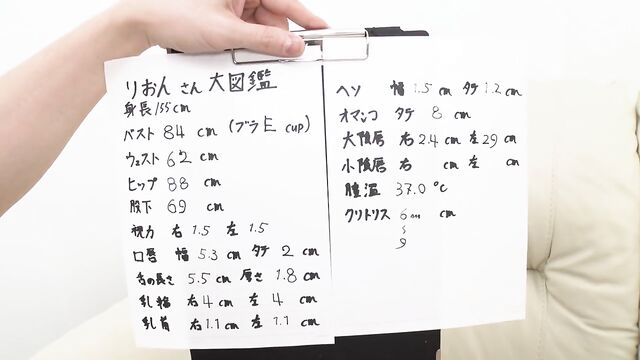 りおんさん大図鑑
身長 155cm
バスト 84 cm (ブラ E cup)
ウェスト 62 cm
ヒップ 88 cm
股下 69 cm
視力 右 1.5 左 1.5
口唇 幅 5.3 cm タテ 2 cm
舌の長さ 5.5 cm 厚さ 1.8 cm
乳輪 右 4 cm 左 4 cm
乳首 右 1.1 cm 左 1.1 cm
ヘソ 幅 1.5 cm タテ 1.2 cm
オマンコ タテ 8 cm
大陰唇 右 2.4 cm 左 29 cm
小陰唇 右 cm 左 cm
膣温 37.0 ℃
クリトリス 6mm cm
9